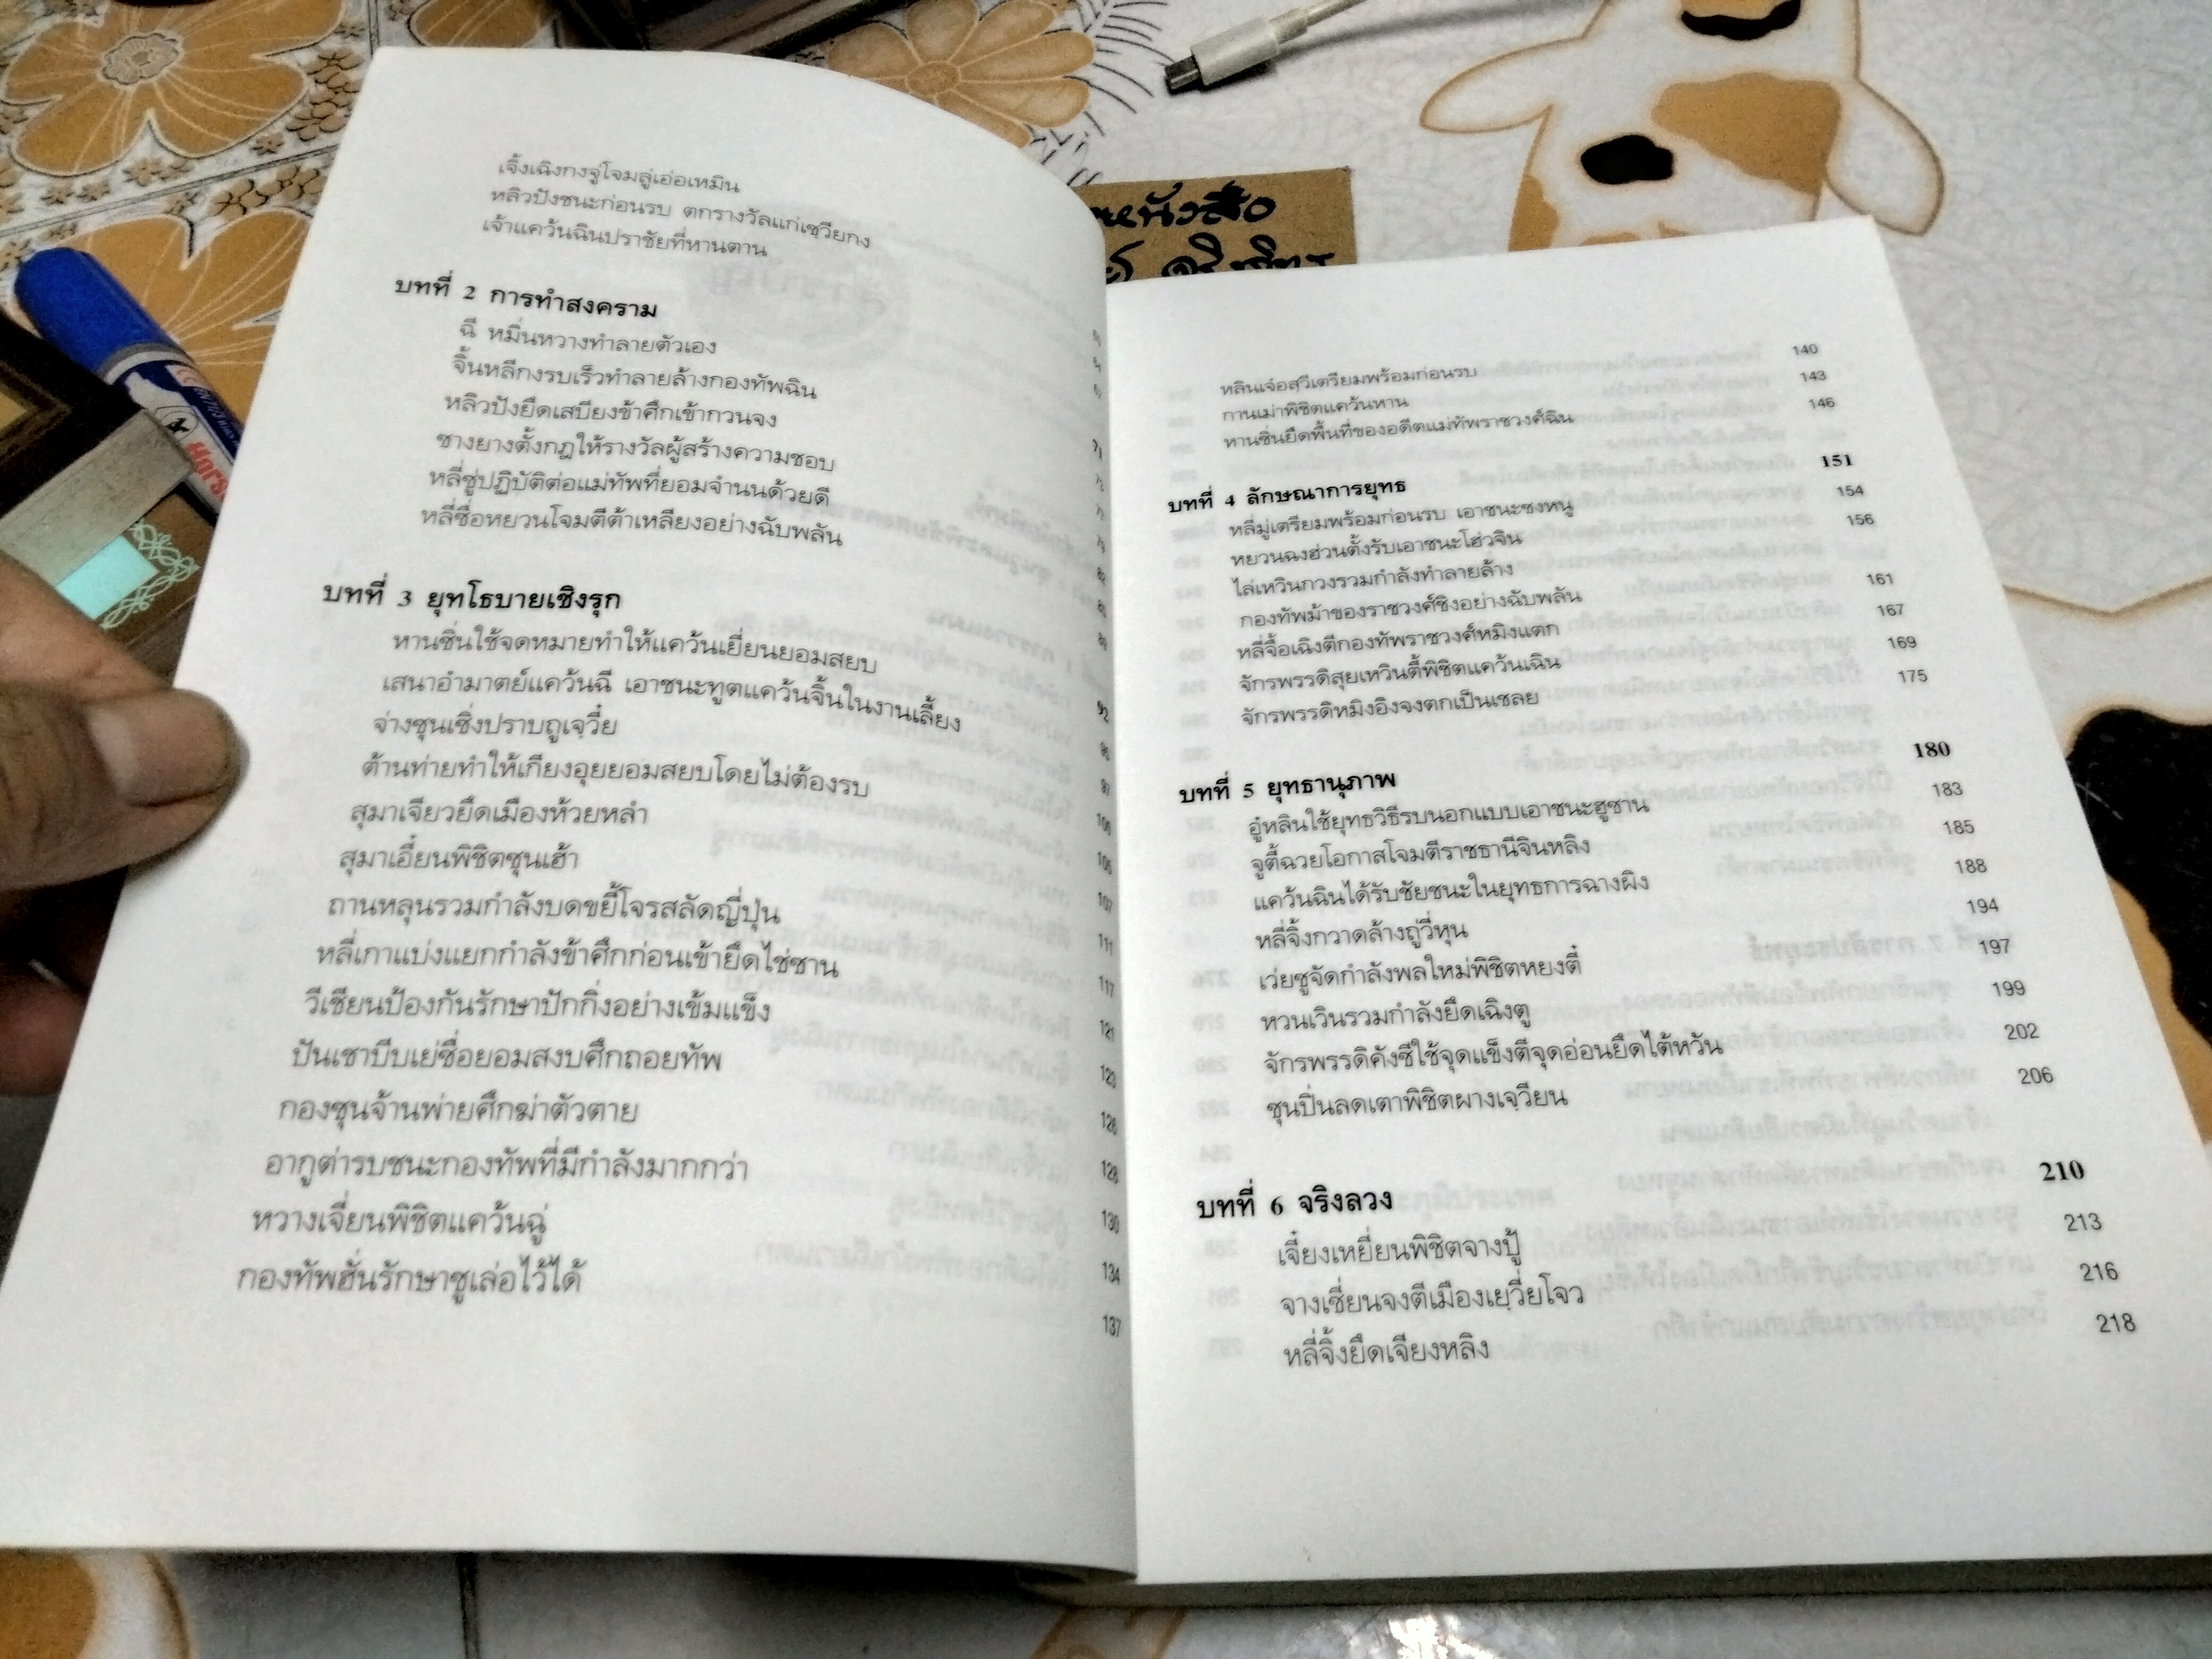 เจิ้งเฉิงกงจู่โจมลู่เอ่อเหมิน
หลิวปังชนะก่อนรบ ตกรางวัลแก่เซวียกง
เจ้าแคว้นฉินปราชัยที่หานตาน
บทที่ 2 การทำสงคราม
ฉี หมิ่นหวางทำลายตัวเอง
จิ้นหลีกงรบเร็วทำลายล้างกองทัพฉิน
หลิวปังยึดเสบียงข้าศึกเข้ากวนจง
ซางยางตั้งกฎให้รางวัลผู้สร้างความชอบ 71
หลี่ซู่ปฏิบัติต่อแม่ทัพที่ยอมจำนนด้วยดี
หลี่ซื่อหยวนโจมตีต้าเหลียงอย่างฉับพลัน
บทที่ 3 ยุทโธบายเชิงรุก
หานซิ่นใช้จดหมายทำให้แคว้นเยี่ยนยอมสยบ
เสนาอำมาตย์แคว้นฉี เอาชนะทูตแคว้นจิ้นในงานเลี้ยง
จ่างซุนเซิ่งปราบถูเจวี๋ย
ต้านท่ายทำให้เกียงอุยยอมสยบโดยไม่ต้องรบ
สุมาเจียวยึดเมืองห้วยหลำ
สุมาเอี้ยนพิชิตซุนเฮ้า
ถานหลุนรวมกำลังบดขยี้โจรสลัดญี่ปุ่น 107
หลี่เกาแบ่งแยกกำลังข้าศึกก่อนเข้ายึดไช่ซาน 111
วีเซียนป้องกันรักษาปักกิ่งอย่างเข้มแข็ง 117
ปันเชาบีบเย่ซื่อยอมสงบศึกถอยทัพ 121
กองซุนจ้านพ่ายศึกฆ่าตัวตาย 123
อากูต่ารบชนะกองทัพที่มีกำลังมากกว่า 126
หวางเจี่ยนพิชิตแคว้นฉู่ 128
กองทัพฮั่นรักษาซูเล่อไว้ได้ 130
134
137
หลินเจ๋อสวีเตรียมพร้อมก่อนรบ 140
กานเม่าพิชิตแคว้นหาน 143
หานซิ่นยึดพื้นที่ของอดีตแม่ทัพราชวงศ์ฉิน 146
บทที่ 4 ลักษณาการยุทธ 151
หลี่มู่เตรียมพร้อมก่อนรบ เอาชนะซงหนู 154
หยวนฉงฮ่วนตั้งรับเอาชนะโฮ่วจิน 156
ไล่เหวินกวงรวมกำลังทำลายล้าง
กองทัพม้าของราชวงศ์ชิงอย่างฉับพลัน 161
หลี่จื้อเฉิงตีกองทัพราชวงศ์หมิงแตก 167
จักรพรรดิสุยเหวินตี้พิชิตแคว้นเฉิน 169
จักรพรรดิหมิงอิงจงตกเป็นเชลย 175
บทที่ 5 ยุทธานุภาพ 180
อู๋หลินใช้ยุทธวิธีรบนอกแบบเอาชนะฮูซาน 183
จูตี้ฉวยโอกาสโจมตีราชธานีจินหลิง 185
แคว้นฉินได้รับชัยชนะในยุทธการฉางผิง 188
หลี่จิ้งกวาดล้างถู่วี่หุน 194
เว่ยซูจัดกำลังพลใหม่พิชิตหยงตี๋ 197
หวนเวินรวมกำลังยึดเฉิงตู 199
จักรพรรดิคังซีใช้จุดแข็งตีจุดอ่อนยึดไต้หวัน 202
ซุนปิ่นลดเตาพิชิตผางเจวียน 206
บทที่ 6 จริงลวง 210
เจี๋ยงเหยี่ยนพิชิตจางปู้ 213
จางเซี่ยนจงตีเมืองเยวี่ยโจว 216
หลี่จิ้งยึดเจียงหลิง 218
หนังสือ